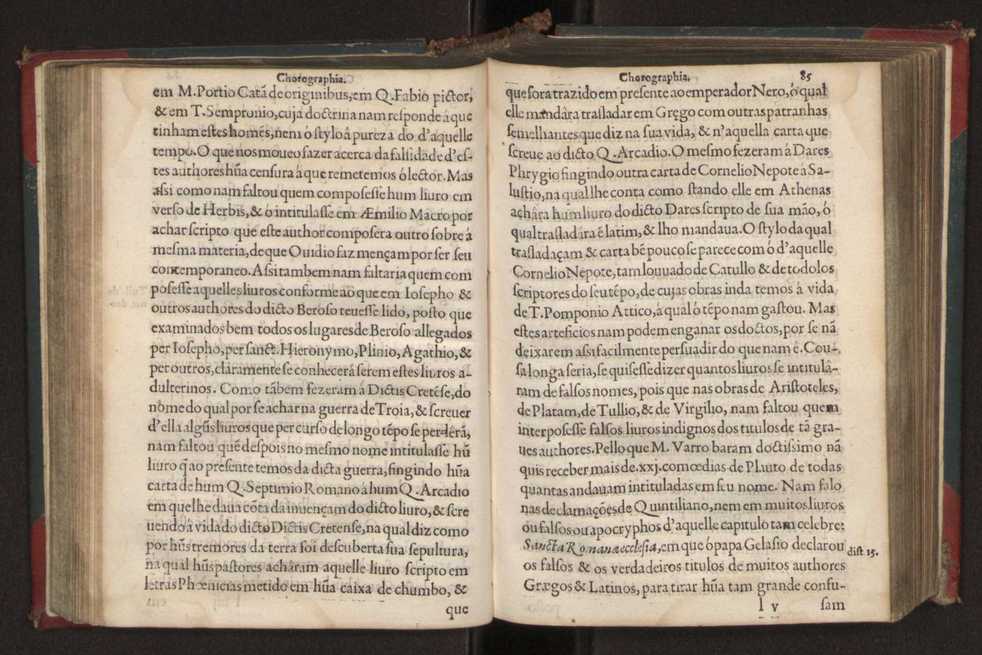 Chorographia.
em M. Portio Catã de originibus, em Q. Fabio pictor,
& em T. Sempronio, cuja doctrina nam responde á que
tinham estes homẽs, nem ó stylo â pureza do d'aquelle
tempo. O que nos moueo fazer acerca da falsidade d'es-
tes authores hũa censura à que remetemos ó lector. Mas
assi como nam faltou quem composesse hum liuro em
verso de Herbis, & ó intitulasse em Æmilio Macro por
achar scripto que este author composera outro sobre á
mesma materia, de que Ouidio faz mençam por ser seu
contemporaneo. Assi tambem nam faltaria quem com
posesse aquelles liuros conforme ao que em Iosepho &
outros authores do dicto Beroso teuesse lido, posto que
examinados bem todos os lugares de Beroso allegados
per Iosepho, per sanct. Hieronymo, Plinio, Agathio, &
per outros, claramente se conhecerá serem estes liuros a-
dulterinos. Como tãbem fezeram á Dictis Cretẽse, do
nome do qual por se achar na guerra de Troia, & screuer
d'ella algũs liuros que per curso de longo tẽpo se perdêrã,
nam faltou quẽ despois no mesmo nome intitulasse hũ
liuro q̃ ao presente temos da dicta guerra, fingindo hũa
carta de hum Q. Septimio Romano á hum Q. Arcadio
em que lhe daua cõta da inuençam do dicto liuro, & scre
uendo á vida do dicto Dictis Cretense, na qual diz como
por hũs tremores da terra foi descuberta sua sepultura,
na qual hũs pastores acháram aquelle liuro scripto em
letras Phœnicias metido em hũa caixa de chumbo, &
que
Chorographia. 85
que fora trazido em presente ao emperador Nero, ó qual
elle mandàra trasladar em Grego com outras patranhas
semelhantes que diz na sua vida, & n'aquella carta que
screue ao dicto Q. Arcadio. O mesmo fezeram á Dares
Phrygio fingindo outra carta de Cornelio Nepote á Sa-
lustio, na qual lhe conta como stando elle em Athenas
achâra hum liuro do dicto Dares scripto de sua mão, ó
qual trasladára ẽ latim, & lho mandaua. O stylo da qual
trasladaçam & carta bẽ pouco se parece com ó d'aquelle
Cornelio Nepote, tam louuado de Catullo & de todolos
scriptores do seu tẽpo, de cujas obras inda temos à vida
de T. Pomponio Attico, á qual ó tẽpo nam gastou. Mas
estes arteficios nam podem enganar os doctos, por se nã
deixarem assi facilmente persuadir do que nam é. Cou-
sa longa seria, se quisesse dizer quantos liuros se intitulâ-
ram de falsos nomes, pois que nas obras de Aristoteles,
de Platam, de Tullio, & de Virgilio, nam faltou quem
interposesse falsos liuros indignos dos titulos de tã gra-
ues authores. Pello que M. Varro baram doctissimo nã
quis receber mais de .xxj. comœdias de Plauto de todas
quantas andauam intituladas em seu nome. Nam falo
nas declamações de Quintiliano, nem em muitos liuros
ou falsos ou apocryphos d'aquelle capitulo tam celebre:
Sancta Romana ecclesia, em que ó papa Gelasio declarou
dist 15.
os falsos & os verdadeiros titulos de muitos authores
Grægos & Latinos, para tirar hũa tam grande confu-
l v sam